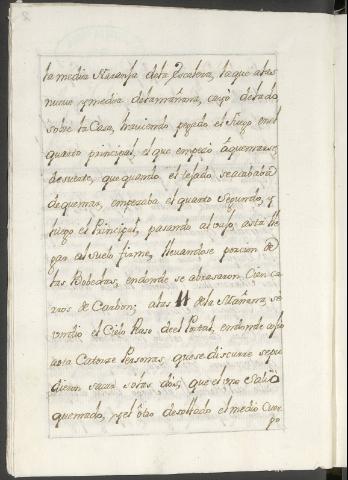 la media Naranja dela Escalera, laque alas
nueve y media dela mañana, cayó de lado
sobre la Casa, haviendo pegado el fuego en el
quarto principal, el que empezó á quemarse,
desuerte, que quando el tejado se acababa
de quemar, empezaba el quarto Segundo, y
luego el Principal, pasando al vajo, asta lle
gar al Suelo firme, llevandose porcion de
las Bobedas, endonde se abrasaron Cien ca
rros de Carbon; alas 11 dela Mañana, se
undio el Cielo Raso deel Portal, endonde cojio
Catorze Personas, que se discurre se pu
dieron sacar solas dos, que el uno Salió
quemado, y el otro desollado el medio Cuer
po